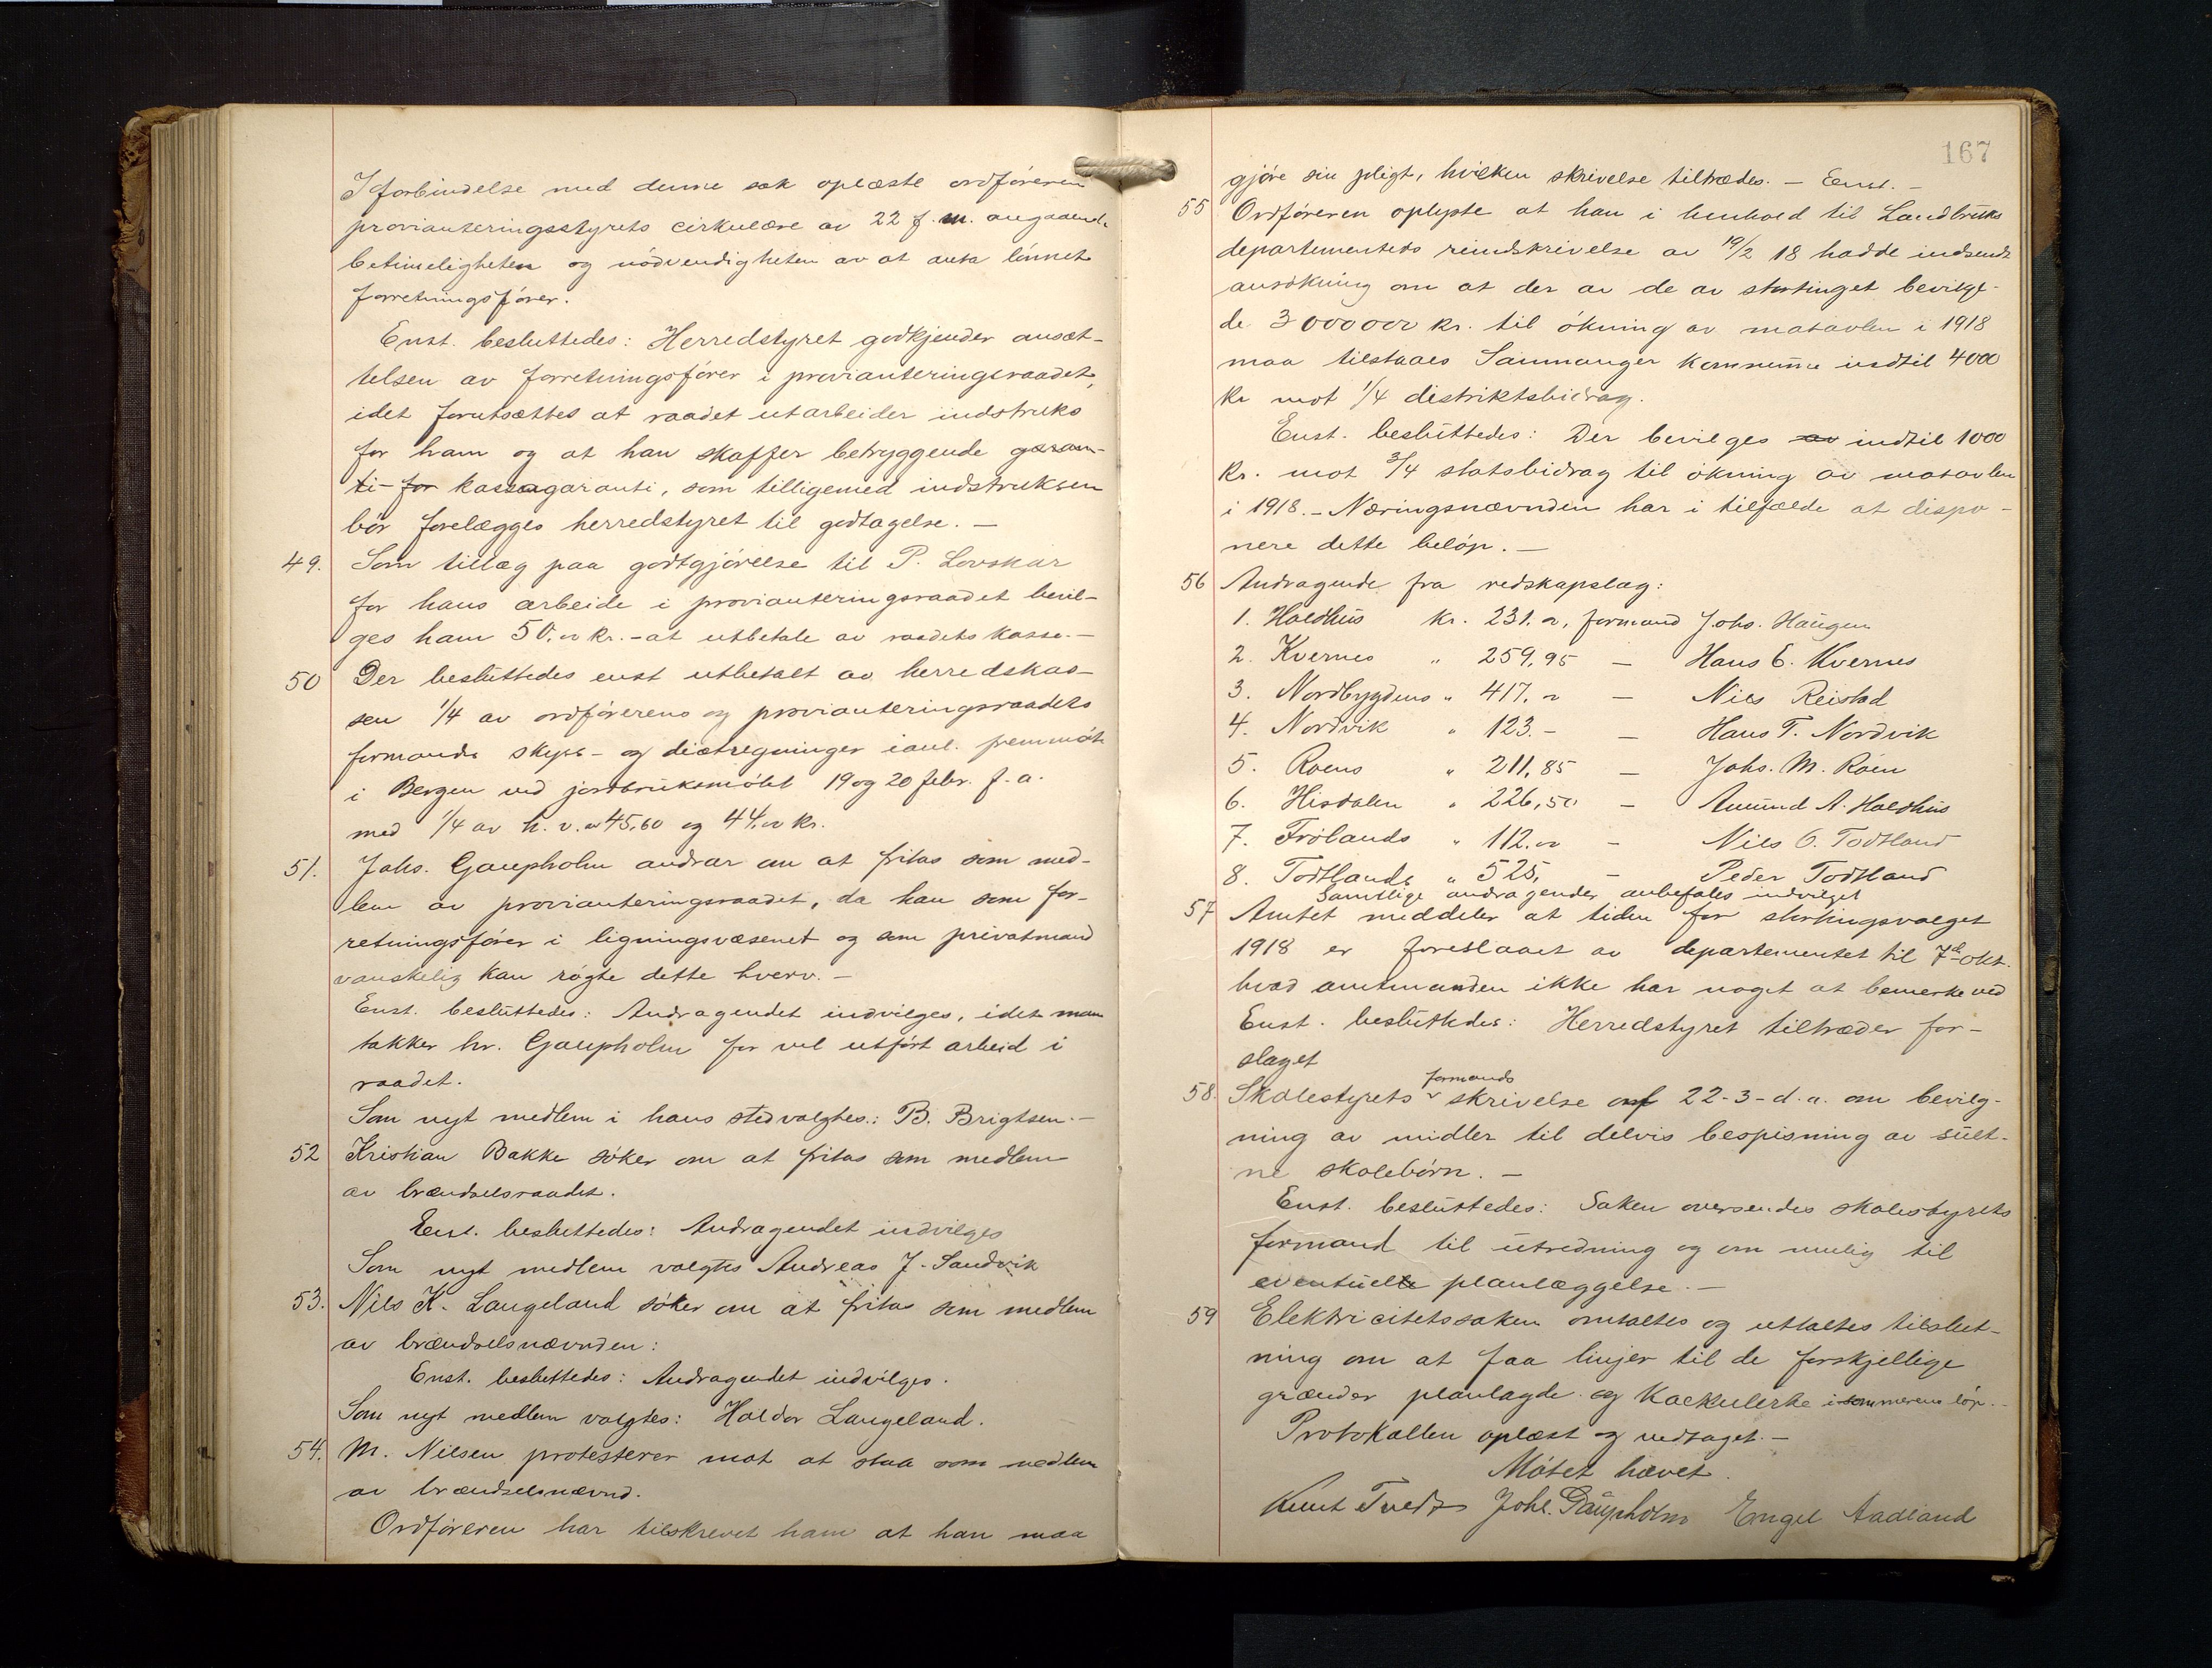 I forbindelse med denne sak oplæste ordføreren
provianteringsstyrets cirkulære av 22 f.m. angaaende
betimeligheten og nödvendigheten av at ansa lönnet
forretningsfører.
Enst. besluttedes: Herredstyret godkjender ansæt-
telsen av forretningsfører i provianteringsraadet,
idet forutsættes at raadet utarbeider indstruks
for ham og at han skaffer betryggende garan-
ti- for kassagaranti, som tilligemed indstruksen
bör forelægges herredstyret til godtagelse. —
49. Som tillæg paa godtgjörelse til P. Lovskar
for hans arbeide i provianteringsraadet bevil-
ges ham 50,00 kr. - at utbetale av raadets kasse. —
50 Der besluttedes enst utbetalt av herredskas-
sen 1/4 av ordførerens og provianteringsraadets
formands skyss- og diætregninger i anl. fremmöte
i Bergen ved jordbruksmötet 19 og 20 febr. f.a.
med 1/4 av h. v. 45,60 og 44,00 kr.
51. Johs. Gaupholm andrar om at fritas som med-
lem av provianteringsraadet, da han som for-
retningsfører i ligningsvæsenet og som privatmand
vanskelig kan rögte dette hverv. —
Enst. besluttedes: Andragendet indvilges, idet man
takker hr. Gaupholm for vel utfört arbeid i
raadet.
Som nyt medlem i hans sted valgtes: B. Brigtsen. —
52 Kristian Bakke söker om at fritas som medlem
av brændselsraadet.
Enst. besluttedes: Andragendet indvilges
Som nyt medlem valgtes Andreas J. Sandvik
53. Nils K. Langeland söker om at fritas som medlem
av brændselsnævnden:
Enst. besluttedes: Andragendet indvilges.
Som nyt medlem valgtes: Haldor Langeland.
54. M. Nilsen protesterer mot at staa som medlem
av brændselsnævnd.
Ordføreren har tilskrevet ham at han maa
167
gjöre sin pligt, hvilken skrivelse tiltrædes. — Enst. —
55 Ordføreren oplyste at han i henhold til Landbruks
departementets rundskrivelse av 19/2 18 hadde indsendt
ansökning om at der av de av stortinget bevilge-
de 3 000 000 kr. til ökning av matavlen i 1918
maa tilstaaes Samnanger kommune indtil 4000
kr mot 1/4 distriktsbidrag.
Enst. besluttedes: Der bevilges av indtil 1000
kr. mot 3/4 statsbidrag til ökning av matavlen
i 1918. - Næringsnævnden har i tilfælde at dispo-
nere dette belöp. —
56 Andragende fra redskapslag:
1. Holdhus kr. 231.00, formand Johs. Haugen
2. Kvernes " 259,95 — Hans E. Kvernes
3. Nordbygdens " 417.00 — Nils Reistad
4. Nordvik " 123.- — Hans T. Nordvik
5. Roens " 211,85 — Johs. M. Röen
6. Hisdalen " 226,50 — Amund A. Holdhus
7. Frölands " 112.00 — Nils O. Todtland
8. Todtlands " 525, — Peder Todtland
Samtlige andragender anbefales indvilget
57 Amtet meddeler at tiden for stortingsvalget
1918 er foreslaaet av departementet til 7de okt.
hvad amtmanden ikke har noget at bemerke ved
Enst. besluttedes: Herredstyret tiltræder for-
slaget
formands
58. Skolestyrets skrivelse av 22-3-d.a. om bevilg-
ning av midler til delvis bespisning av sult-
ne skolebörn. —
Enst. besluttedes: Saken oversendes skolestyrets
formand til utredning og om mulig til
eventuelle planlæggelse. —
59 Elektricitetssaken omtaltes og uttaltes tilslut-
ning om at faa linjer til de forskjellige
grænder planlagde og kalkulerte i sommerens löp. —
Protokollen oplæst og vedtaget. —
Mötet hævet.
Knut Tvedt Johs. Gaupholm Engel Aadland